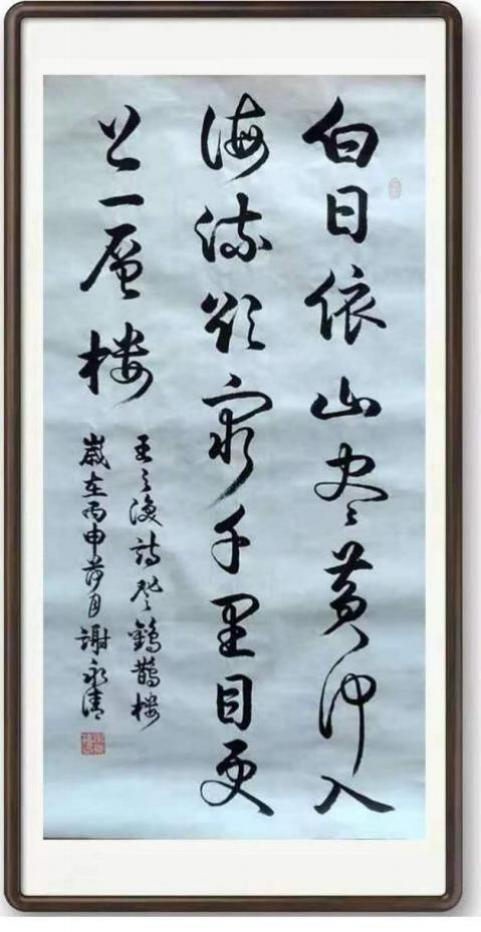 白日依山尽黄河入
海流欲穷千里目更
上一層楼
王之涣诗登鸛鵲楼
歲在丙申月謝永清